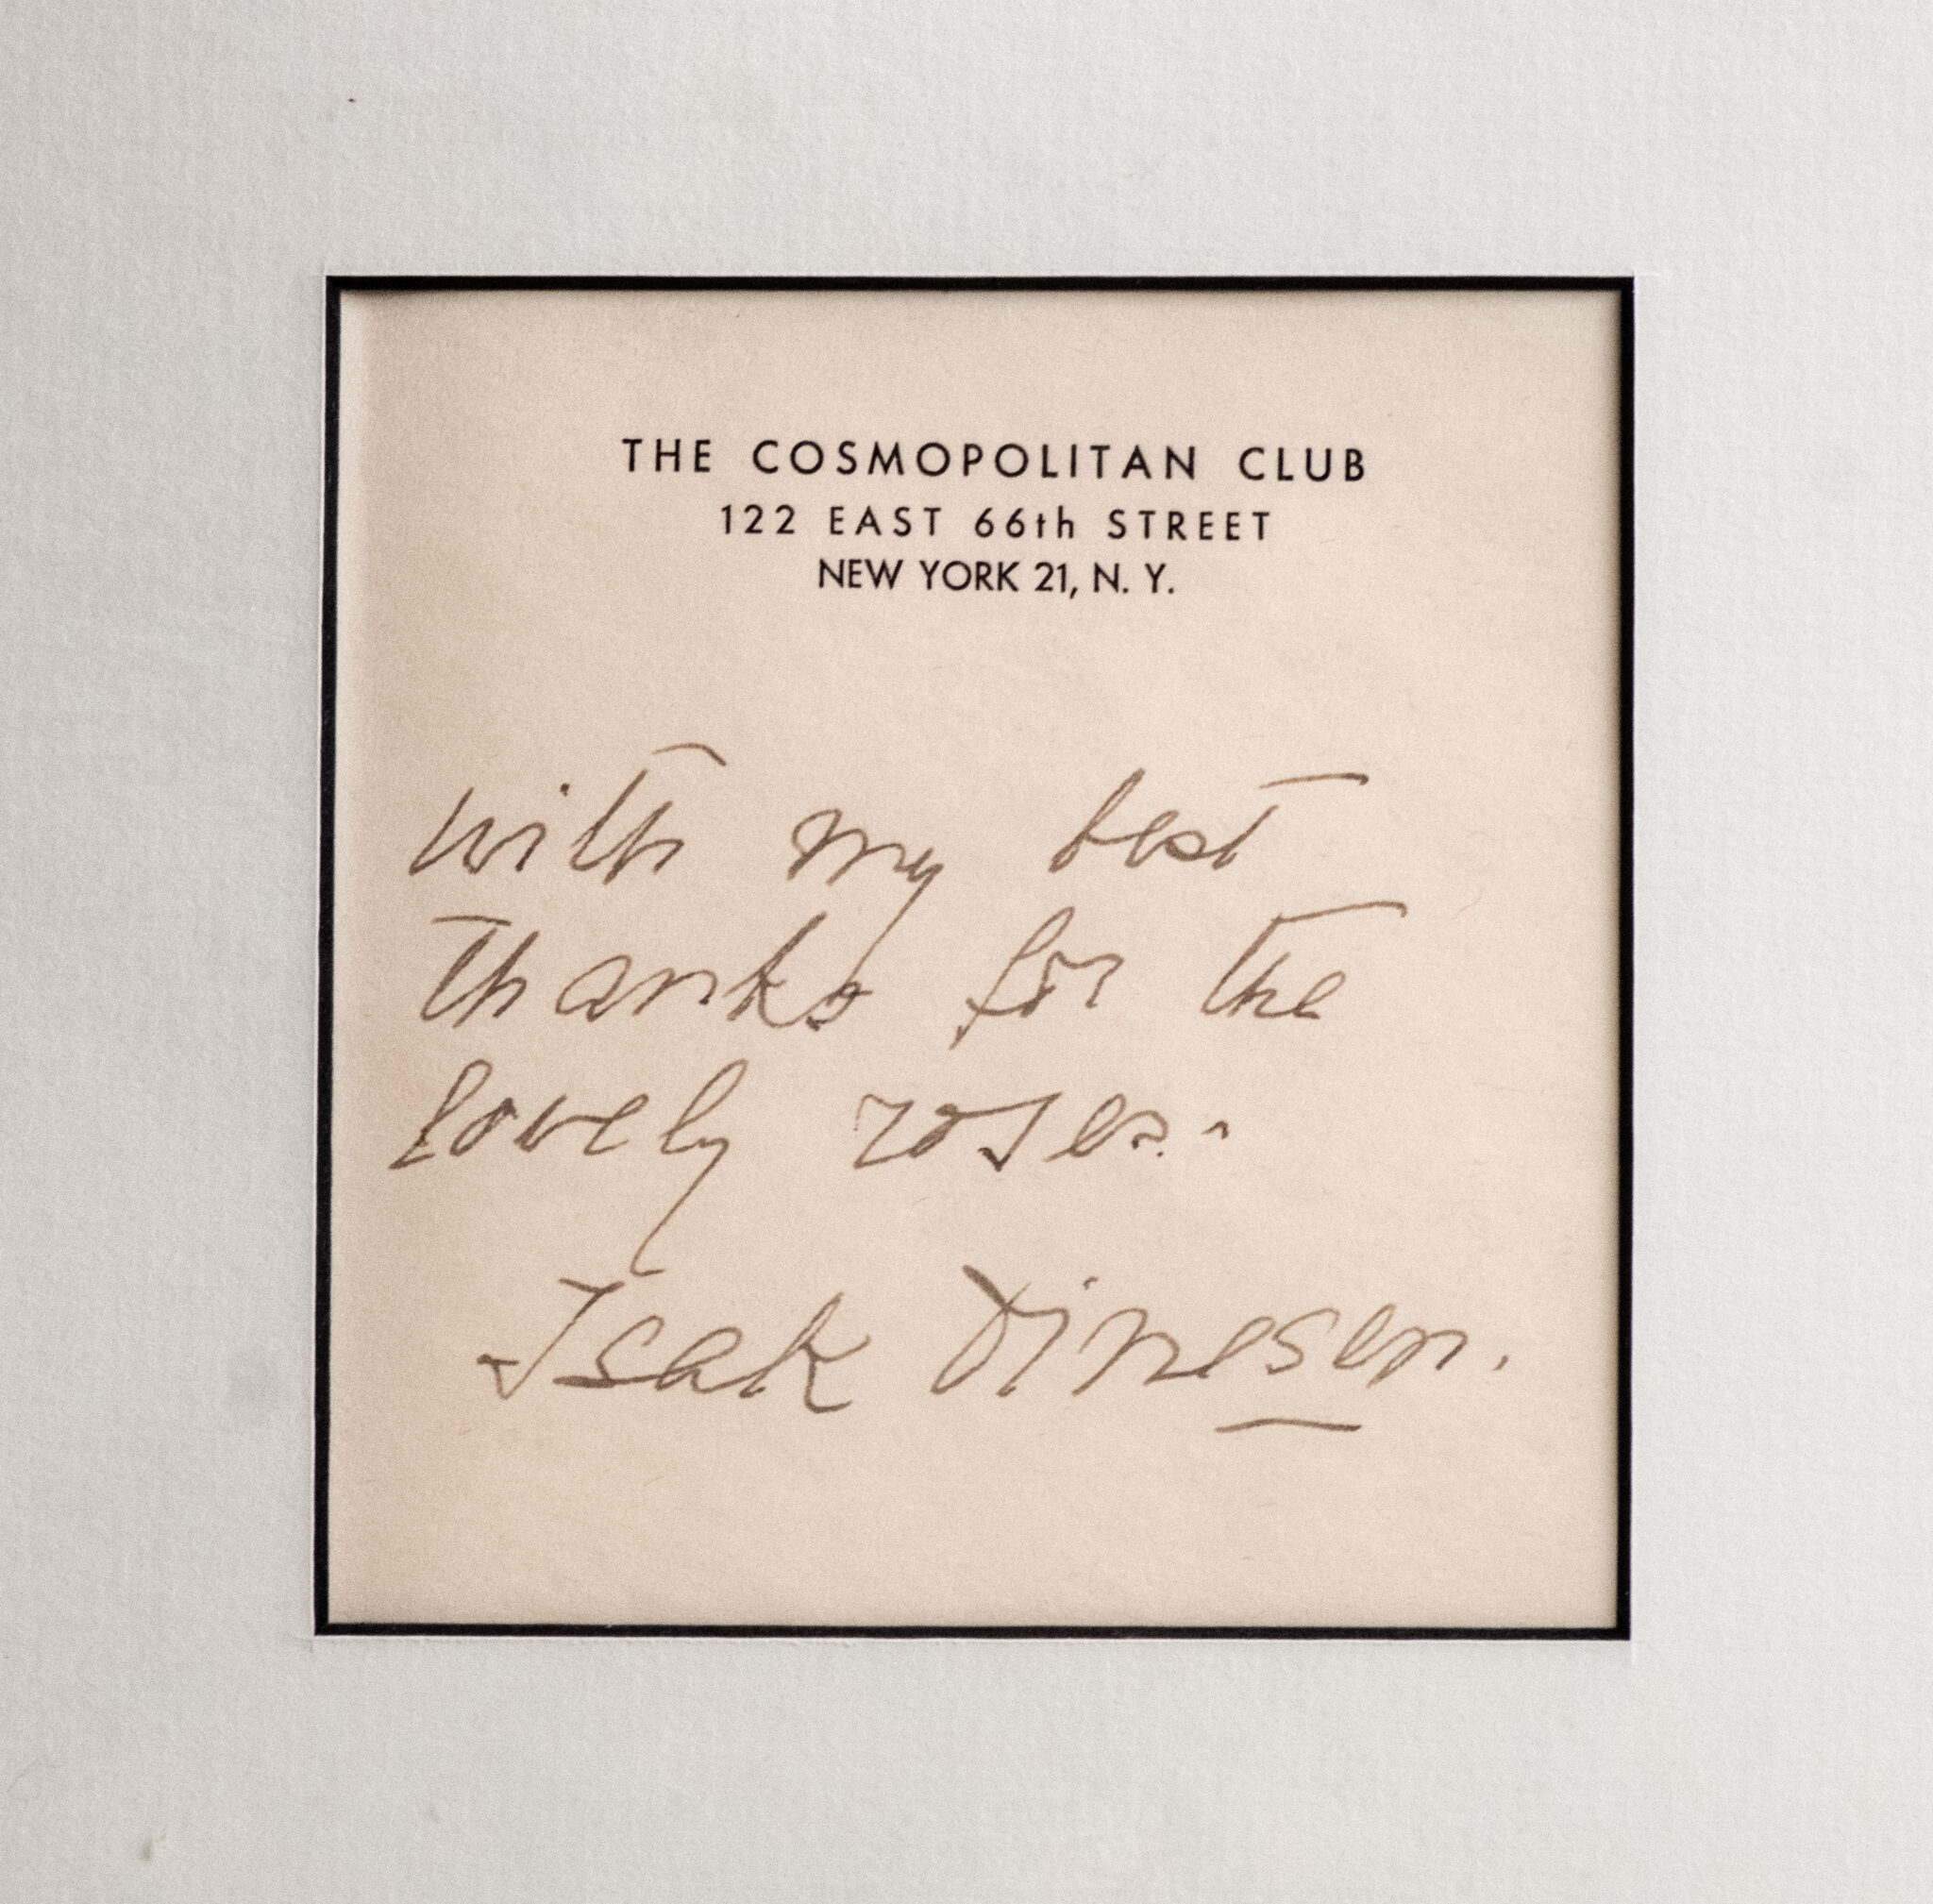 THE COSMOPOLITAN CLUB
122 EAST 66th STREET
NEW YORK 21, N. Y.
with my best
thanks for the
lovely roses.-
Isak Dinesen.